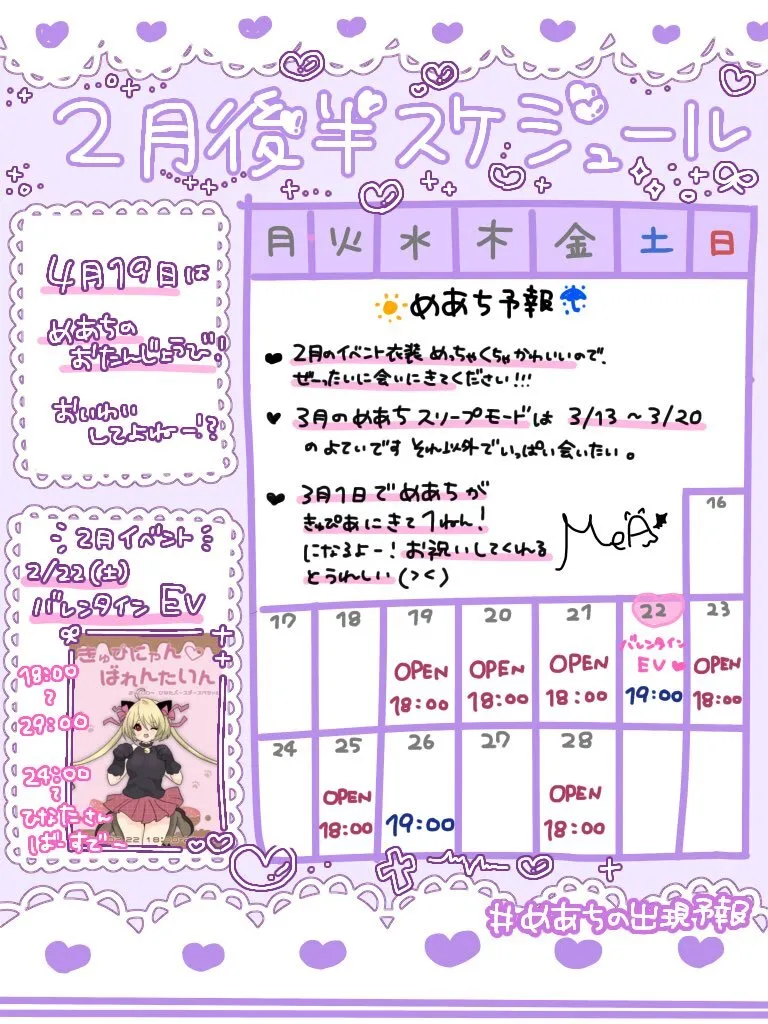 2月後半スケジュール
4月19日は
めあちの
おたんじょうび!
おいわい
してよねー!?
2月イベント
2/22(土)
バレンタインEV
18:00
~
29:00
24:00
~
ひなたさん
ばーすでー
きゅぴにゃん♡
ばれんたいん
月 火 水 木 金 土 日
めあち予報
♥ 2月のイベント衣装 めっちゃくちゃかわいいので、
ぜーったいに会いにきてください!!!
♥ 3月のめあち スリープモードは 3/13 ~ 3/20
のよていです それ以外でいっぱい会いたい。
♥ 3月1日でめあちが
きゅぴあにきて1ねん!
になるよー! お祝いしてくれる
とうれしい(><)
MeA
16
17 18 19 20 21 22 23
OPEN OPEN OPEN バレンタイン OPEN
EV♥
18:00 18:00 18:00 19:00 18:00
24 25 26 27 28
OPEN OPEN
18:00 19:00 18:00
#めあちの出現予報